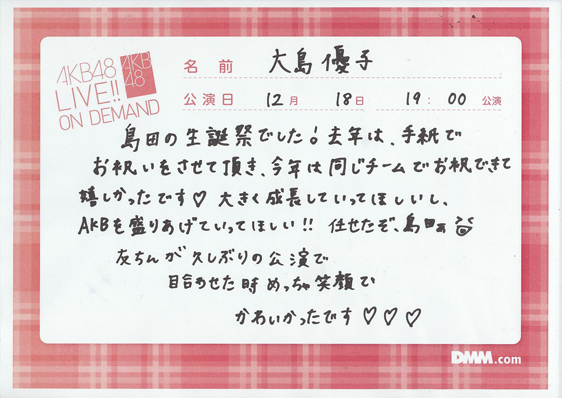 AKB48
LIVE!!
ON DEMAND
AKB
48
名前 大島優子
公演日 12月 18日 19:00 公演
島田の生誕祭でした！去年は、手紙で
お祝いをさせて頂き、今年は同じチームでお祝いできて
嬉しかったです♡ 大きく成長していってほしいし、
AKBを盛りあげていってほしい!! 任せたぞ、島田
友ちんが久しぶりの公演で
目合わせた時めっちゃ笑顔で
かわいかったです♡♡♡
DMM.com